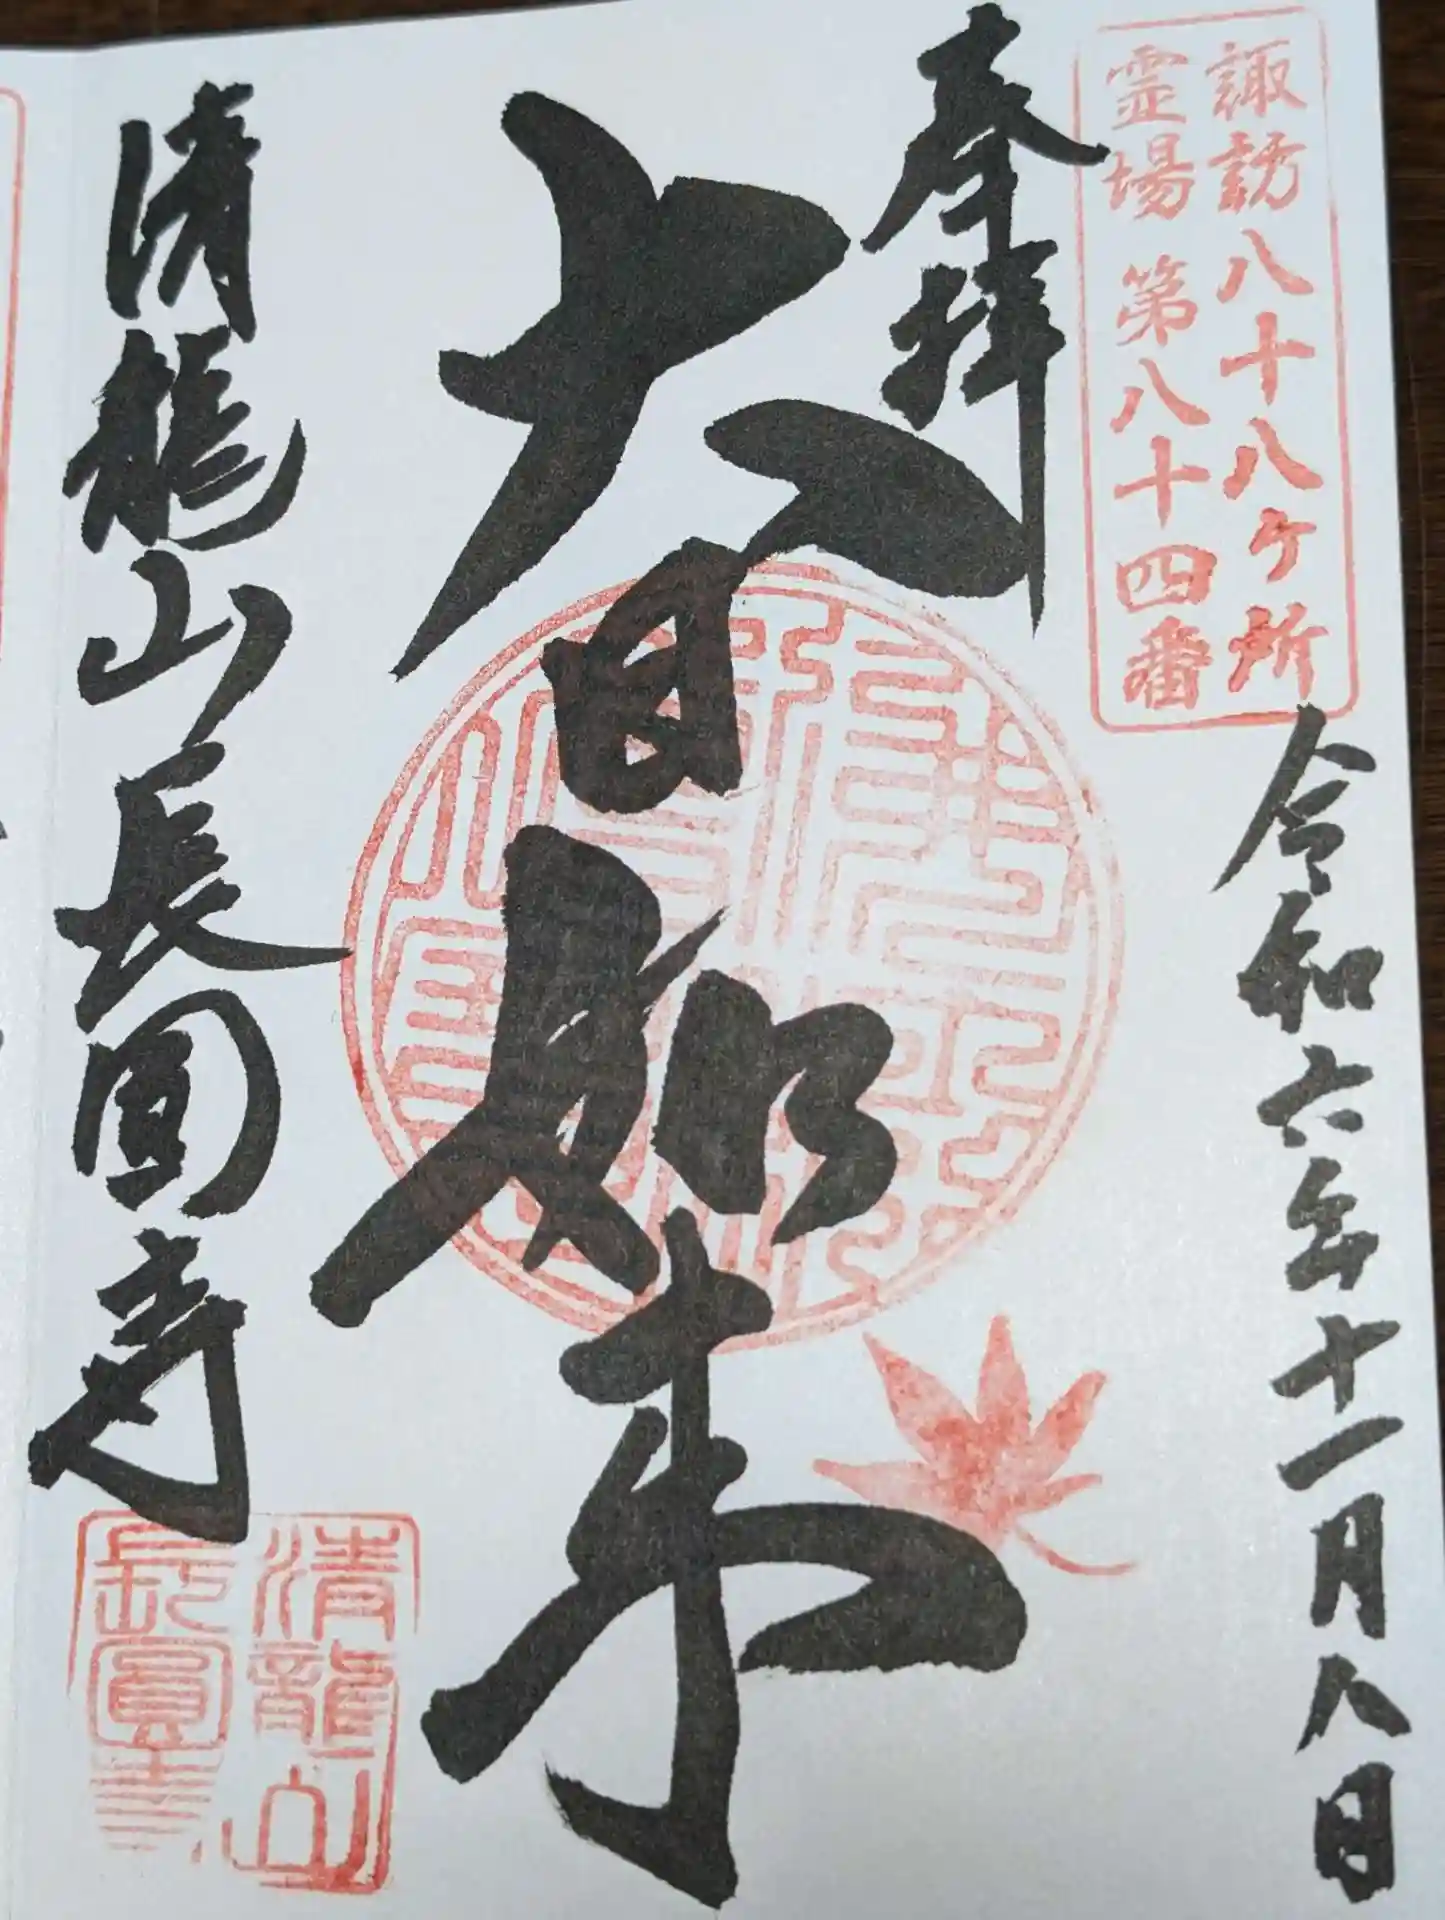 諏訪八十八ヶ所
霊場 第八十四番
奉拝
令和六年十一月八日
大日如来
清龍山長圓寺
清龍山
長圓寺